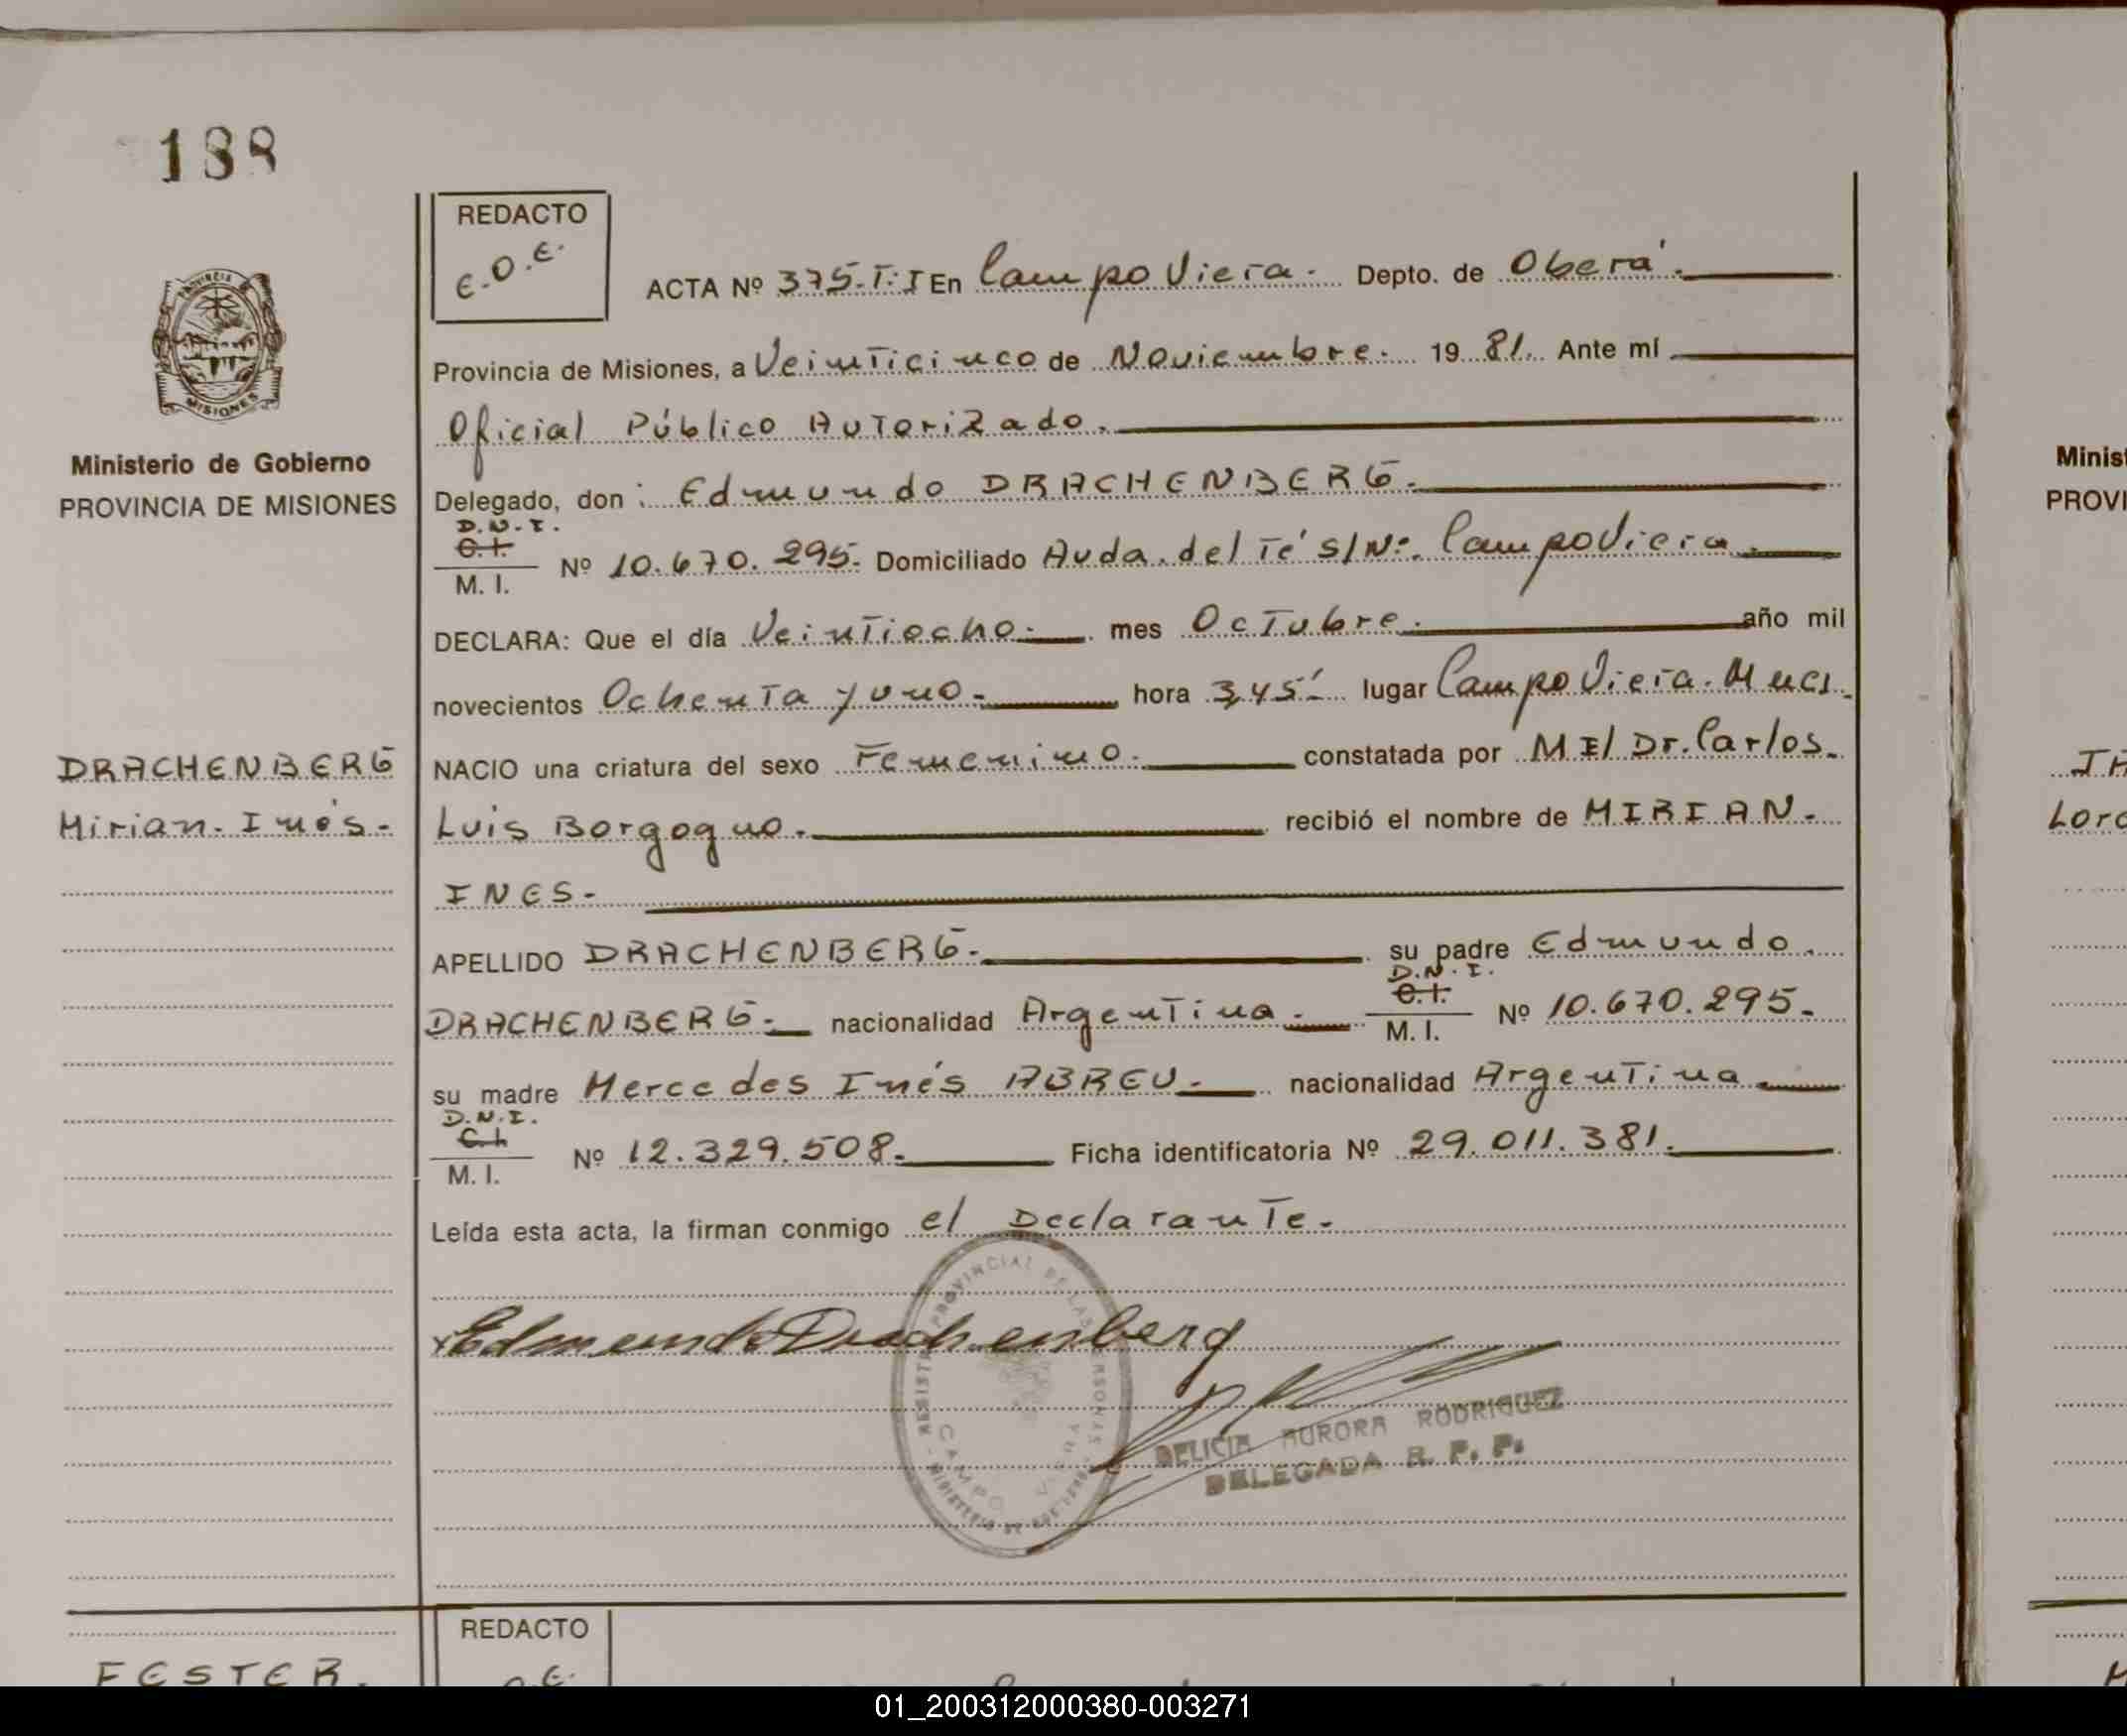 188
REDACTO
E.O.E.
ACTA Nº 375.T:I En Campo Viera. Depto. de Oberá.
Provincia de Misiones, a Veinticinco de Noviembre. 1981. Ante mí
Oficial Público Autorizado.
Ministerio de Gobierno
PROVINCIA DE MISIONES
Delegado, don: Edmundo DRACHENBERG.
D.N.I.
C.I.
M. I.
Nº 10.670.295. Domiciliado Avda. del Té S/Nº. Campo Viera.
DECLARA: Que el día Veintiocho. mes Octubre. año mil
novecientos Ochenta y uno. hora 3,45´ lugar Campo Viera. Muci.
DRACHENBERG
Mirian. Inés.
NACIO una criatura del sexo Femenino. constatada por M El Dr. Carlos.
Luis Borgogno. recibió el nombre de MIRIAN.
INES.
APELLIDO DRACHENBERG. su padre Edmundo.
DRACHENBERG. nacionalidad Argentina. D.N.I. C.I. M. I. Nº 10.670.295.
su madre Mercedes Inés ABREU. nacionalidad Argentina.
D.N.I.
C.I.
M. I.
Nº 12.329.508. Ficha identificatoria Nº 29.011.381.
Leída esta acta, la firman conmigo el Declarante.
Edmundo Drachenberg
REGISTRO PROVINCIAL DE LAS PERSONAS
CAMPO VIERA
MINISTERIO DE GOBIERNO
DELICIA AURORA RODRIGUEZ
DELEGADA R. P. P.
REDACTO
FESTER.
Minist
PROVI
Lorc
01_200312000380-003271